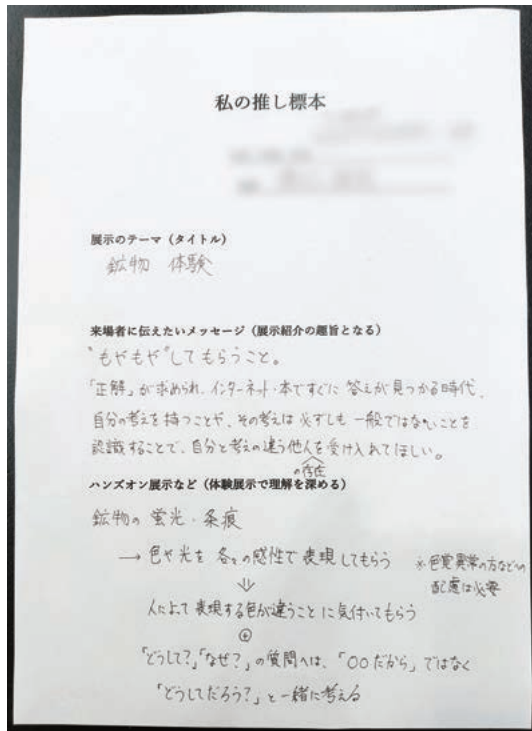 私の推し標本
展示のテーマ（タイトル）
鉱物 体験
来場者に伝えたいメッセージ（展示紹介の趣旨となる）
"もやもや"してもらうこと。
「正解」が求められ、インターネット・本ですぐに答えが見つかる時代、
自分の考えを持つことや、その考えは必ずしも一般ではないことを
認識することで、自分と考えの違う他人の存在を受け入れてほしい。
ハンズオン展示など（体験展示で理解を深める）
鉱物の蛍光・条痕
→ 色や光を各々の感性で表現してもらう ※色覚異常の方などへの
配慮は必要
⇓
人によって表現する色が違うことに気付いてもらう
⊕
「どうして？」「なぜ？」の質問へは、「○○だから」ではなく
「どうしてだろう？」と一緒に考える